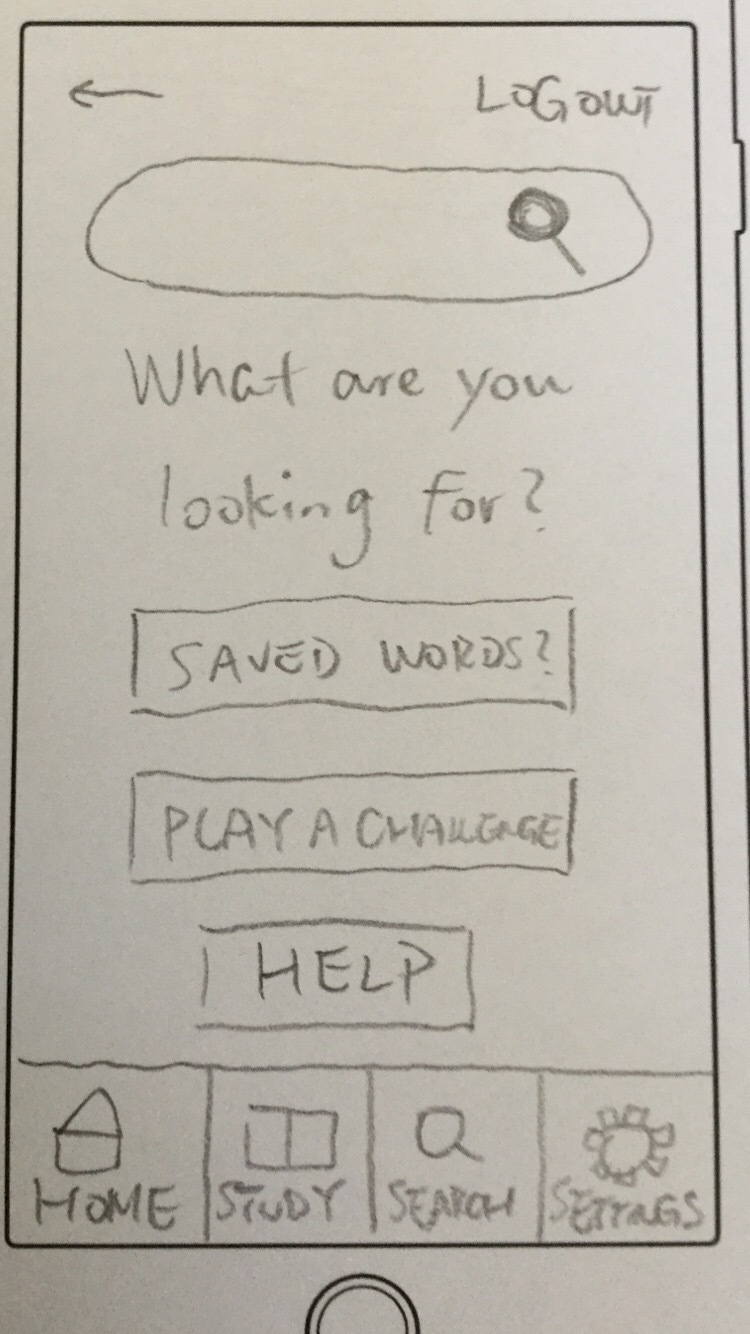 LOGOUT
What are you
looking for?
SAVED WORDS?
PLAY A CHALLENGE
HELP
HOME STUDY SEARCH SETTINGS